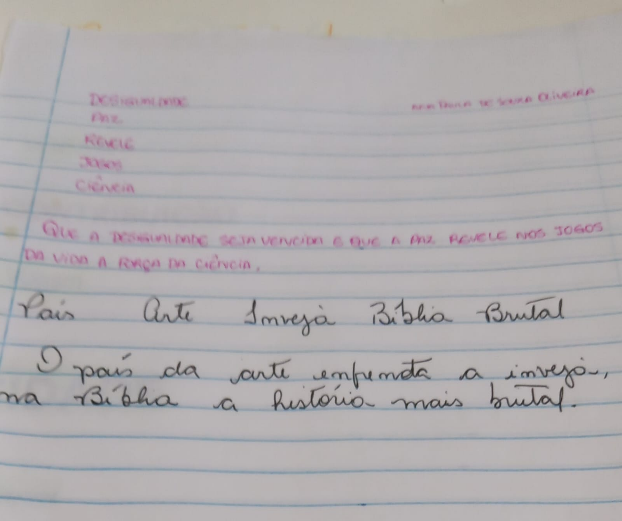 DESIGUALDADE
ANA PAULA DE SOUZA OLIVEIRA
PAZ
REVELE
JOGOS
CIÊNCIA
QUE A DESIGUALDADE SEJA VENCIDA E QUE A PAZ REVELE NOS JOGOS
DA VIDA A FORÇA DA CIÊNCIA.
País Arte Inveja Bíblia Brutal
O país da arte enfrenta a inveja,
na Bíblia a história mais brutal.